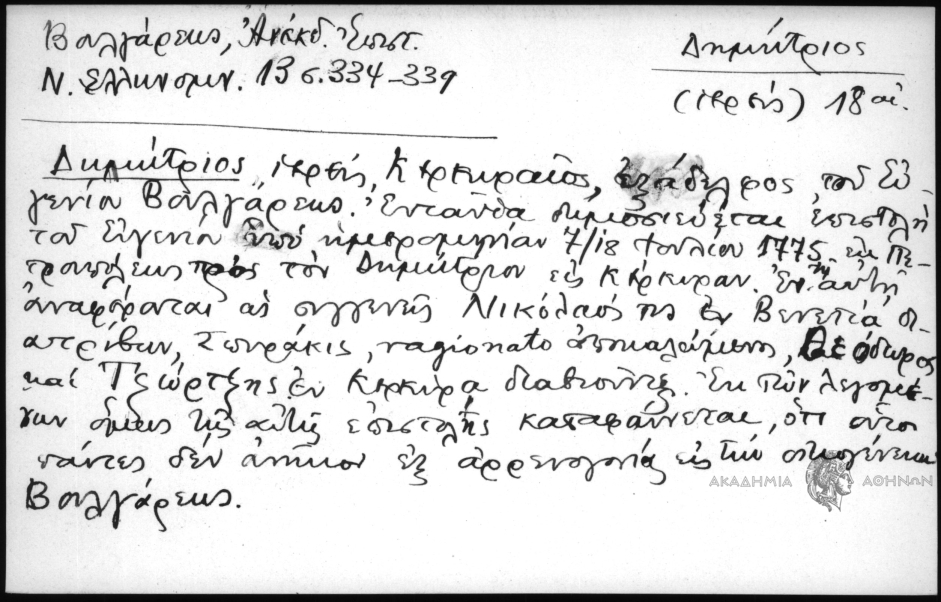 Βουλγάρεως, Ἀνέκδ. Ἐπιστ.
Ν. Ἑλληνομν. 13 σ. 334-339
Δημήτριος
(ἱερεύς) 18 αἰ.
Δημήτριος, ἱερεύς, Κερκυραῖος, ἐξάδελφος τοῦ Εὐ-
γενίου Βουλγάρεως. Ἐνταῦθα δημοσιεύεται ἐπιστολὴ
τοῦ Εὐγενίου ὑπὸ ἡμερομηνίαν 7/18 Ἰουλίου 1775 ἐκ Πε-
τρουπόλεως πρὸς τὸν Δημήτριον εἰς Κέρκυραν. Ἐν αὐτῇ
ἀναφέρονται ὡς συγγενεῖς Νικόλαός τις ἐν Βενετίᾳ δι-
ατρίβων, Σπυράκις, ragionato ἀποκαλούμενος, Θεόδωρος
καὶ Τζώρτζης ἐν Κερκύρᾳ διαβιοῦντες. Ἐκ τῶν λεγομέ-
νων ὅμως τῆς αὐτῆς ἐπιστολῆς καταφαίνεται, ὅτι οὗτοι
πάντες δὲν ἀνῆκον ἐξ ἀρρενογονίας εἰς τὴν οἰκογένειαν
Βουλγάρεως.
ΑΚΑΔΗΜΙΑ ΑΘΗΝΩΝ